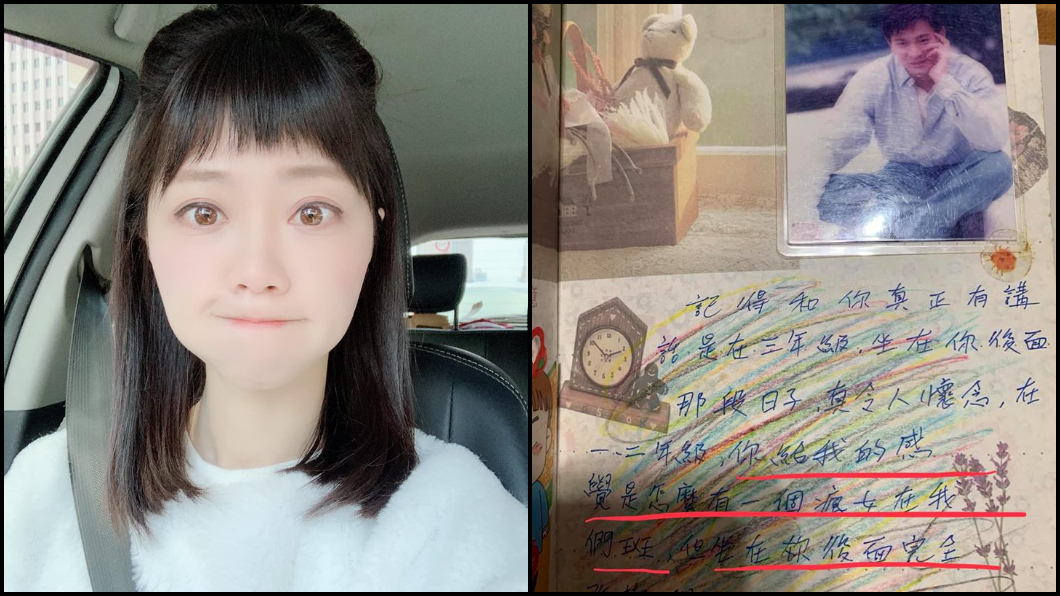 記得和你真正有講
話是在三年級,坐在你後面
那段日子,真令人懷念,在
一、二年級,你給我的感
覺是怎麼有一個瘋女在我
們班,但坐在妳後面完全